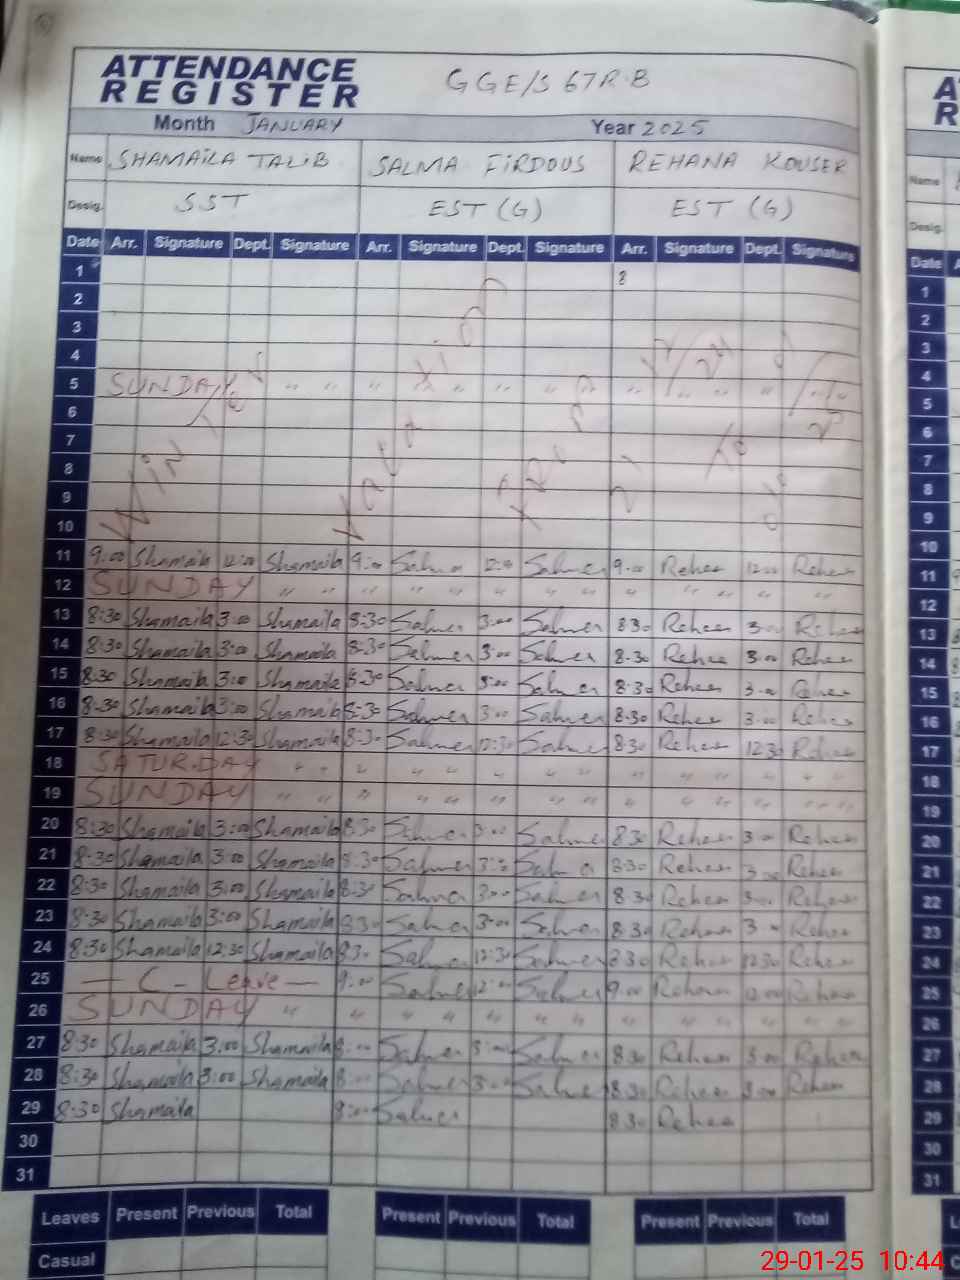 ATTENDANCE REGISTER
GGE/S 67R.B
Month JANUARY Year 2025
Name SHAMAILA TALIB SALMA FIRDOUS REHANA KOUSER
Desig. SST EST (G) EST (G)
Date Arr. Signature Dept. Signature Arr. Signature Dept. Signature Arr. Signature Dept. Signature
1 8
2
3
4
5 SUNDAY " " " " " " " " " " "
6
7
8
9
10
WINTER VACATION FROM
11 9:00 Shamaila 12:00 Shamaila 9:00 Salma 12:00 Salma 9.00 Rehana 12:00 Rehana
12 SUNDAY " " " " " " " " " " " "
13 8:30 Shamaila 3:00 Shamaila 8:30 Salma 3:00 Salma 8:30 Rehana 3:00 Rehana
14 8:30 Shamaila 3:00 Shamaila 8:30 Salma 3:00 Salma 8:30 Rehana 3:00 Rehana
15 8:30 Shamaila 3:00 Shamaila 8:30 Salma 3:00 Salma 8:30 Rehana 3:00 Rehana
16 8:30 Shamaila 3:00 Shamaila 8:30 Salma 3:00 Salma 8:30 Rehana 3:00 Rehana
17 8:30 Shamaila 12:30 Shamaila 8:30 Salma 12:30 Salma 8:30 Rehana 12:30 Rehana
18 SATURDAY " " " " " " " " " " " "
19 SUNDAY " " " " " " " " " " " "
20 8:30 Shamaila 3:00 Shamaila 8:30 Salma 3:00 Salma 8:30 Rehana 3:00 Rehana
21 8:30 Shamaila 3:00 Shamaila 8:30 Salma 3:00 Salma 8:30 Rehana 3:00 Rehana
22 8:30 Shamaila 3:00 Shamaila 8:30 Salma 3:00 Salma 8:30 Rehana 3:00 Rehana
23 8:30 Shamaila 3:00 Shamaila 8:30 Salma 3:00 Salma 8:30 Rehana 3:00 Rehana
24 8:30 Shamaila 12:30 Shamaila 8:30 Salma 12:30 Salma 8:30 Rehana 12:30 Rehana
25 — C - Leave — 9:00 Salma 12:00 Salma 9:00 Rehana 12:00 Rehana
26 SUNDAY " " " " " " " " " " "
27 8:30 Shamaila 3:00 Shamaila 8:00 Salma 3:00 Salma 8:30 Rehana 3:00 Rehana
28 8:30 Shamaila 3:00 Shamaila 8:00 Salma 3:00 Salma 8:30 Rehana 3:00 Rehana
29 8:30 Shamaila 8:00 Salma 8:30 Rehana
30
31
Leaves Present Previous Total Present Previous Total Present Previous Total
Casual
Name
Desig.
Date
1
2
3
4
5
6
7
8
9
10
11
12
13
14
15
16
17
18
19
20
21
22
23
24
25
26
27
28
29
30
31
29-01-25 10:44